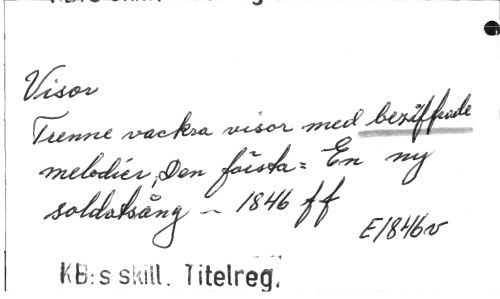 Visor
Trenne vackra visor med beziffrade
melodier, Den första: En ny
soldatsång — 1846 ff
E1846v
KB:s skill. Titelreg.